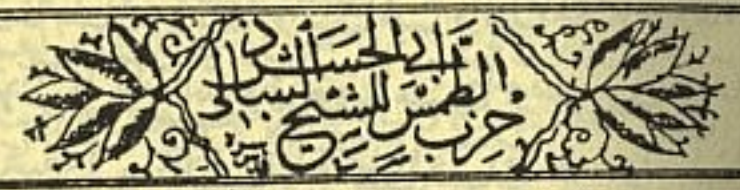 حزب الطمس للشيخ ابى الحسن الشاذلى